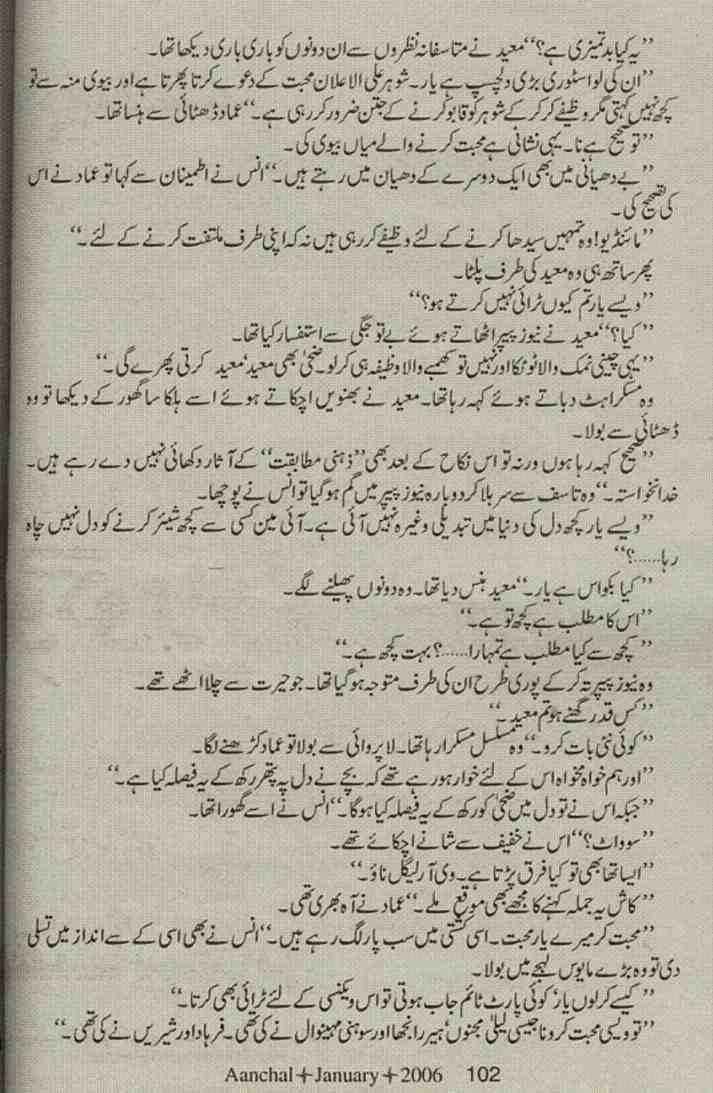 ”یہ کیا بدتمیزی ہے؟“ معید نے متاسفانہ نظروں سے ان دونوں کو باری باری دیکھا تھا۔
”ان کی لو اسٹوری بڑی دلچسپ ہے یار۔ شوہر علی الاعلان محبت کے دعوے کرتا پھرتا ہے اور بیوی منہ سے تو
کچھ نہیں کہتی مگر وظیفے کر کر کے شوہر کو قابو کرنے کے جتن ضرور کر رہی ہے۔“ عماد ڈھٹائی سے ہنسا تھا۔
”تو صحیح ہے نا۔ یہی نشانی ہے محبت کرنے والے میاں بیوی کی۔
”بے دھیانی میں بھی ایک دوسرے کے دھیان میں رہتے ہیں۔“ انس نے اطمینان سے کہا تو عماد نے اس
کی تصحیح کی۔
”مائنڈ یو! وہ تمہیں سیدھا کرنے کے لئے وظیفے کر رہی ہیں نہ کہ اپنی طرف ملتفت کرنے کے لئے۔“
پھر ساتھ ہی وہ معید کی طرف پلٹا۔
”ویسے یار تم کیوں ٹرائی نہیں کرتے ہو؟“
”کیا؟“ معید نے نیوز پیپر اٹھاتے ہوئے بے توجگی سے استفسار کیا تھا۔
”یہی چینی نمک والا ٹوٹکا اور نہیں تو کھمبے والا وظیفہ ہی کر لو۔ ضحیٰ بھی معید‘ معید کرتی پھرے گی۔“
وہ مسکراہٹ دباتے ہوئے کہہ رہا تھا۔ معید نے بھنویں اچکاتے ہوئے اسے ہلکا سا گھور کے دیکھا تو وہ
ڈھٹائی سے بولا۔
”صحیح کہہ رہا ہوں ورنہ تو اس نکاح کے بعد بھی ”ذہنی مطابقت“ کے آثار دکھائی نہیں دے رہے ہیں۔
خدانخواستہ۔“ وہ تاسف سے سر ہلا کر دوبارہ نیوز پیپر میں گم ہو گیا تو انس نے پوچھا۔
”ویسے یار کچھ دل کی دنیا میں تبدیلی وغیرہ نہیں آئی ہے۔ آئی مین کسی سے کچھ شیئر کرنے کو دل نہیں چاہ
رہا......؟“
”کیا بکواس ہے یار۔“ معید ہنس دیا تھا۔ وہ دونوں پھیلنے لگے۔
”اس کا مطلب ہے کچھ تو ہے۔“
”کچھ سے کیا مطلب ہے تمہارا......؟ بہت کچھ ہے۔“
وہ نیوز پیپر تہ کر کے پوری طرح ان کی طرف متوجہ ہو گیا تھا۔ جو حیرت سے چلا اٹھے تھے۔
”کس قدر گھنے ہو تم معید۔“
”کوئی نئی بات کرو۔“ وہ مسلسل مسکرا رہا تھا۔ لاپروائی سے بولا تو عماد کڑھنے لگا۔
”اور ہم خواہ مخواہ اس کے لئے خوار ہو رہے تھے کہ بچے نے دل پہ پتھر رکھ کے یہ فیصلہ کیا ہے۔“
”جبکہ اس نے تو دل میں ضحیٰ کو رکھ کے یہ فیصلہ کیا ہوگا۔“ انس نے اسے گھورا تھا۔
”سو واٹ؟“ اس نے خفیف سے شانے اچکائے تھے۔
”ایسا تھا بھی تو کیا فرق پڑتا ہے۔ وی آر لیگل ناؤ۔“
”کاش یہ جملہ کہنے کا مجھے بھی موقع ملے۔“ عماد نے آہ بھری تھی۔
”محبت کر میرے یار محبت۔ اسی کشتی میں سب پار لگ رہے ہیں۔“ انس نے بھی اسی کے سے انداز میں تسلی
دی تو وہ بڑے مایوس لہجے میں بولا۔
”کیسے کر لوں یار‘ کوئی پارٹ ٹائم جاب ہوتی تو اس ویکنسی کے لئے ٹرائی بھی کرتا۔“
”تو ویسی محبت کرو نا جیسی لیلیٰ مجنوں‘ ہیر رانجھا اور سوہنی مہینوال نے کی تھی۔ فرہاد اور شیریں نے کی تھی۔“
Aanchal+January+2006 102